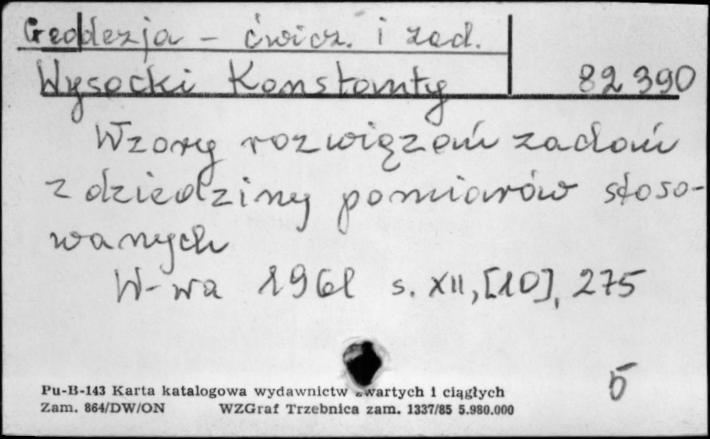 Geodezja - ćwicz. i zad.
Wysocki Konstanty 82 390
Wzory rozwiązań zadań
z dziedziny pomiarów stoso-
wanych
W-wa 1961 s. XII, [10], 275
5
Pu-B-143 Karta katalogowa wydawnictw zwartych i ciągłych
Zam. 864/DW/ON WZGraf Trzebnica zam. 1337/85 5.980.000